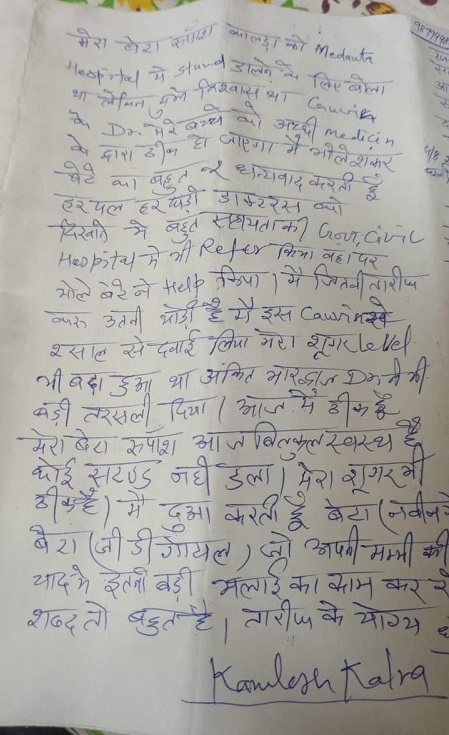 मेरा बेटा रूपांश कालड़ा को Medanta
Hospital मे stund डालने के लिए बोला
था लेकिन मुझे विश्वास था
के Dr. मेरे बच्चे को अच्छी medicin
के द्वारा ठीक हो जाएगा मै भोलेशंकर
बेटे का बहुत २ धन्यवाद करती हूँ
हरपल हर घड़ी डाक्टरस को
दिखाने मे बहुत सहायता की Govt, Civil
Hospital मे भी Refer किया वहां पर
भोले बेटे ने Help किया। मै जितनी तारीफ
करू उतनी थोड़ी है मै इस से
२ साल से दवाई लिया मेरा शूगर level
भी बढ़ा हुआ था अंकित भारद्वाज Dr. ने भी
बड़ी तस्सली दिया। आज मै ठीक हूँ
मेरा बेटा रूपांश आज बिलकुल स्वस्थ है
कोई सटण्ड नही डला। मेरा शूगर भी
ठीक है। मै दुआ करती हूँ बेटा (नवीन
बेटा (जी डी गोयल) जो अपनी मम्मी की
याद मे इतनी बड़ी भलाई का काम कर रे
शब्द तो बहुत है। तारीफ के योग्य
Kamlesh Kalra